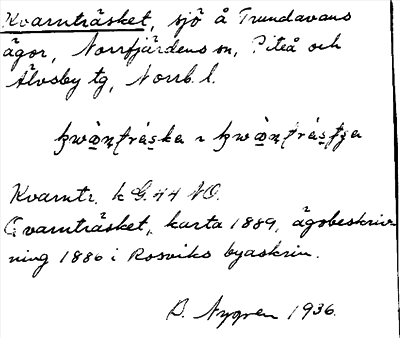 Kvarnträsket, sjö å Trundavans
ägor, Norrfjärdens sn, Piteå och
Älvsby tg, Norrb. l.
Kvarntr. k G. 44 NO.
Qvarnträsket, karta 1889, ägobeskriv-
ning 1886 i Rosviks byaskrin.
B. Nygren 1936.